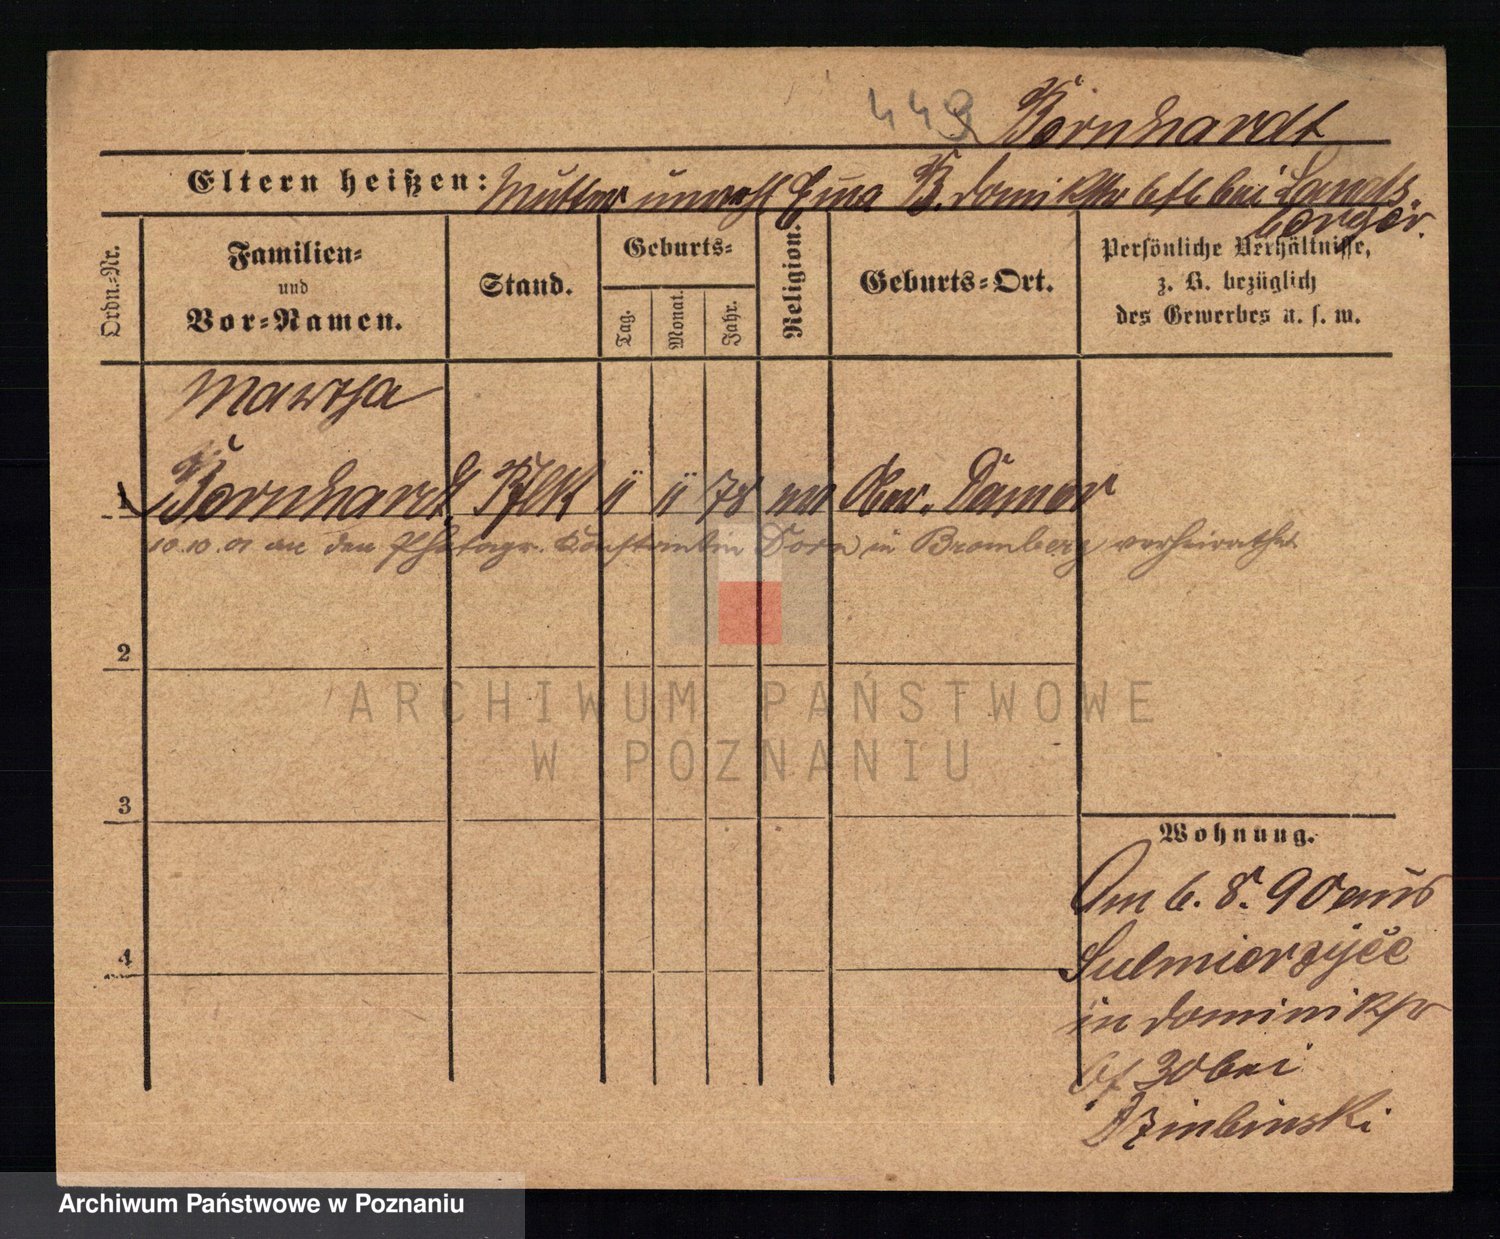 449 Bornhardt
Eltern heißen: Mutter unvehl B. Dominikstr bei Lands
berger.
Ordn.-Nr.
Familien-
und
Vor-Namen.
Stand.
Geburts-
Tag.
Monat.
Jahr.
Religion.
Geburts-Ort.
Persönliche Verhältnisse,
z. B. bezüglich
des Gewerbes u. s. w.
Martha
1 Bornhardt 11 11 78 Ober.
10.10.01 an den Photogr. Konstantin Dorn in Bromberg verheirathet
2
3
4
Wohnung.
Am 6. 8. 90 aus
Sulmierzyce
in Dominikstr
30 bei
Dzinbinski
ARCHIWUM PAŃSTWOWE
W POZNANIU
Archiwum Państwowe w Poznaniu